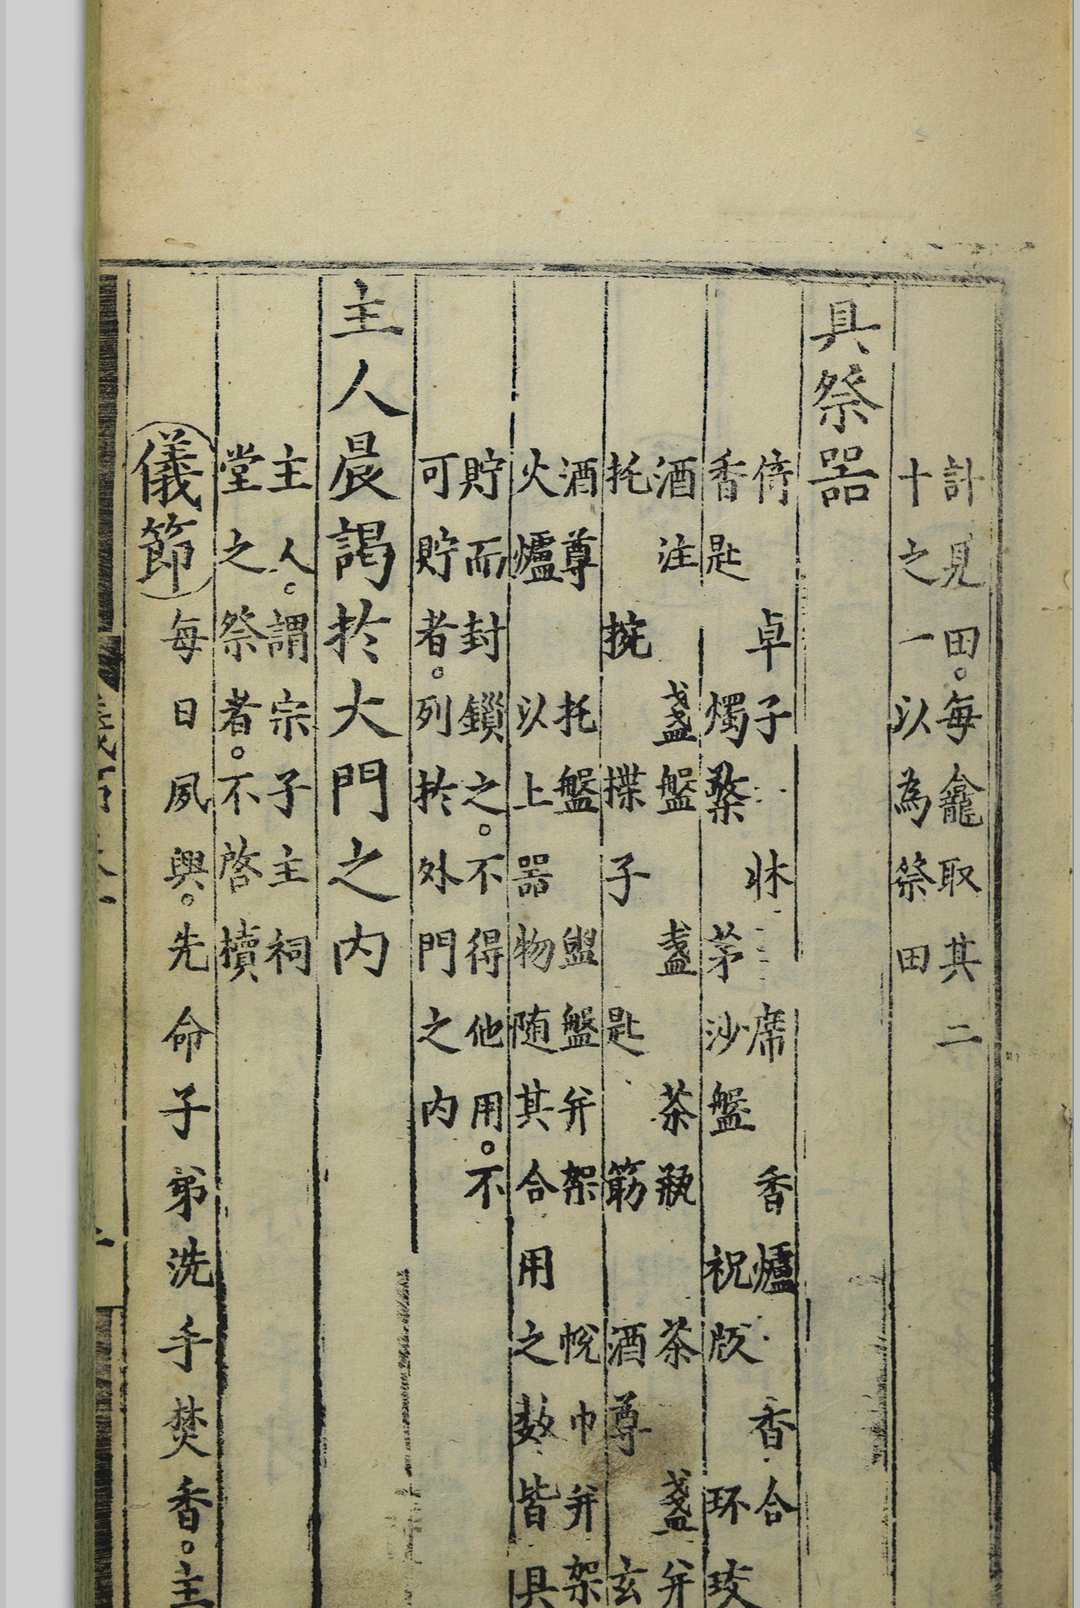 計見田。每龕取其二
十之一以為祭田
具祭器
倚 卓子 牀 席 香爐 香合
香匙 燭檠 茅沙盤 祝版 环珓
酒注 盞盤 盞 茶瓶 茶盞并
托 椀 楪子 匙 筯 酒尊 玄
酒尊 托盤 盥盤并架 帨巾并架
火爐 以上器物随其合用之數皆具
貯而封鎖之。不得他用。不
可貯者。列於外門之内
主人晨謁於大門之内
主人。謂宗子主祠
堂之祭者。不啓櫝
儀節 每日夙興。先命子弟洗手焚香。主